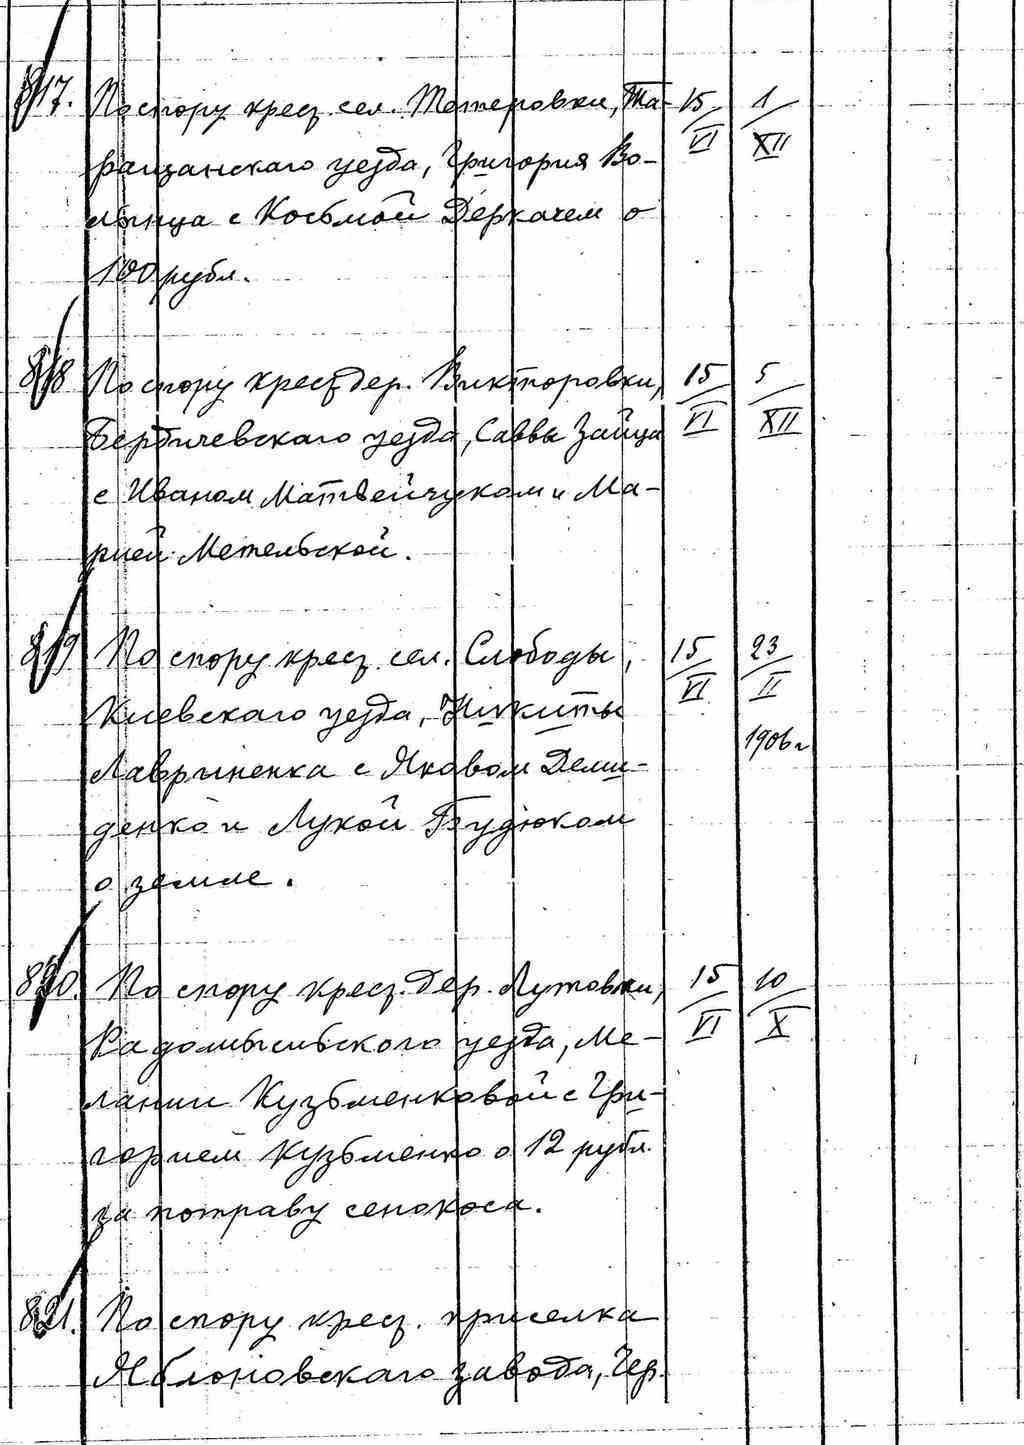 817. По спору крест. сел. Тетеровки, Та- 15/VI 1/XII
ращанскаго уезда, Григория Во-
лынца с Косьмой Деркачем о
100 рубл.
818 По спору крест. дер. Викторовки, 15/VI 5/XII
Бердичевскаго уезда, Саввы Зайца
с Иваном Матвейчуком и Ма-
рией Метельской.
819 По спору крест. сел. Слободы, 15/VI 23/II 1906 г
Киевскаго уезда, Никиты
Лавриненка с Яковом Деми-
денко и Лукой Будюком
о земле.
820. По спору крест. дер. Лутовки, 15/VI 10/X
Радомысльского уезда, Ме-
лании Кузьменковой с Гри-
горием Кузьменко о 12 рубл.
за потраву сенокоса.
821. По спору крест. приселка
Яблоновскаго завода, Чер.